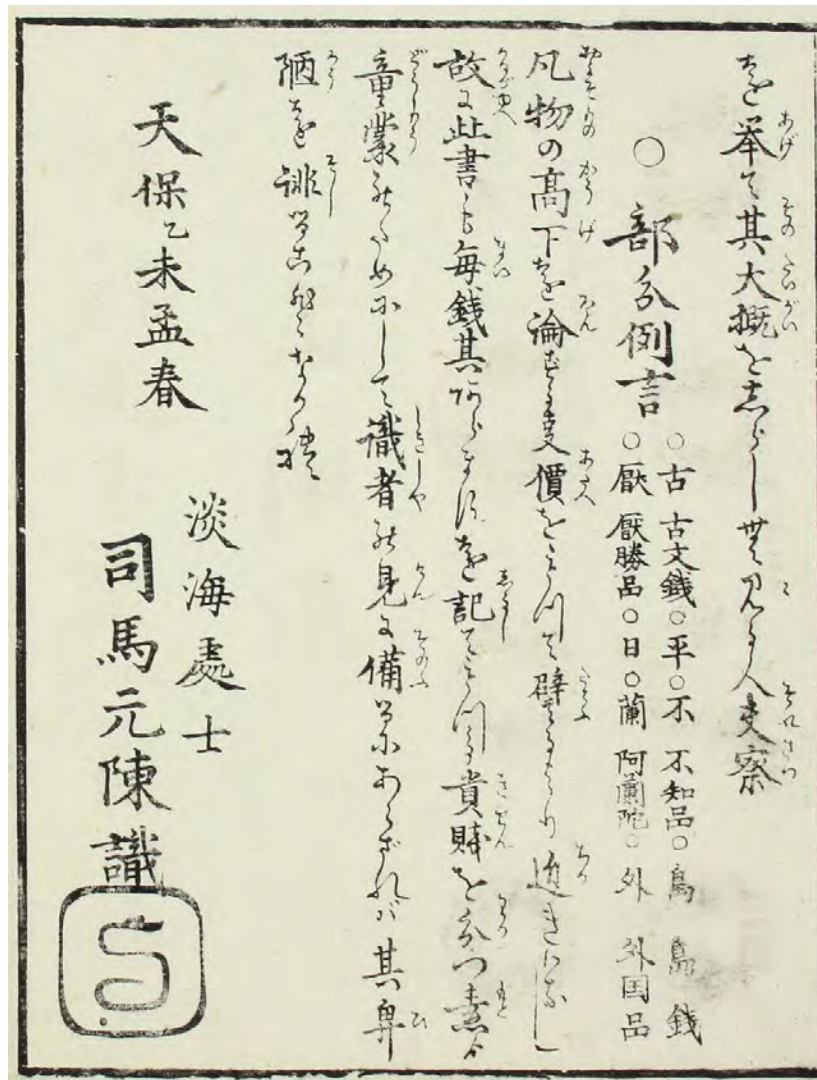 を挙て其大概を志らしむ見る人夫察
○部分例言
○古 古文銭○平○不 不知品○島 島銭
○厭 厭勝品○日○蘭 阿蘭陀○外 外国品
凡物の高下を論ずる夫價をもつて譬るより近きハなし
故に此書も毎銭其あらましを記てもつて貴賎を分つ素より
童蒙のためにして識者の見に備るにあらざれバ其卑
陋を誹ることなかれ
天保乙未孟春
淡海處士
司馬元陳識